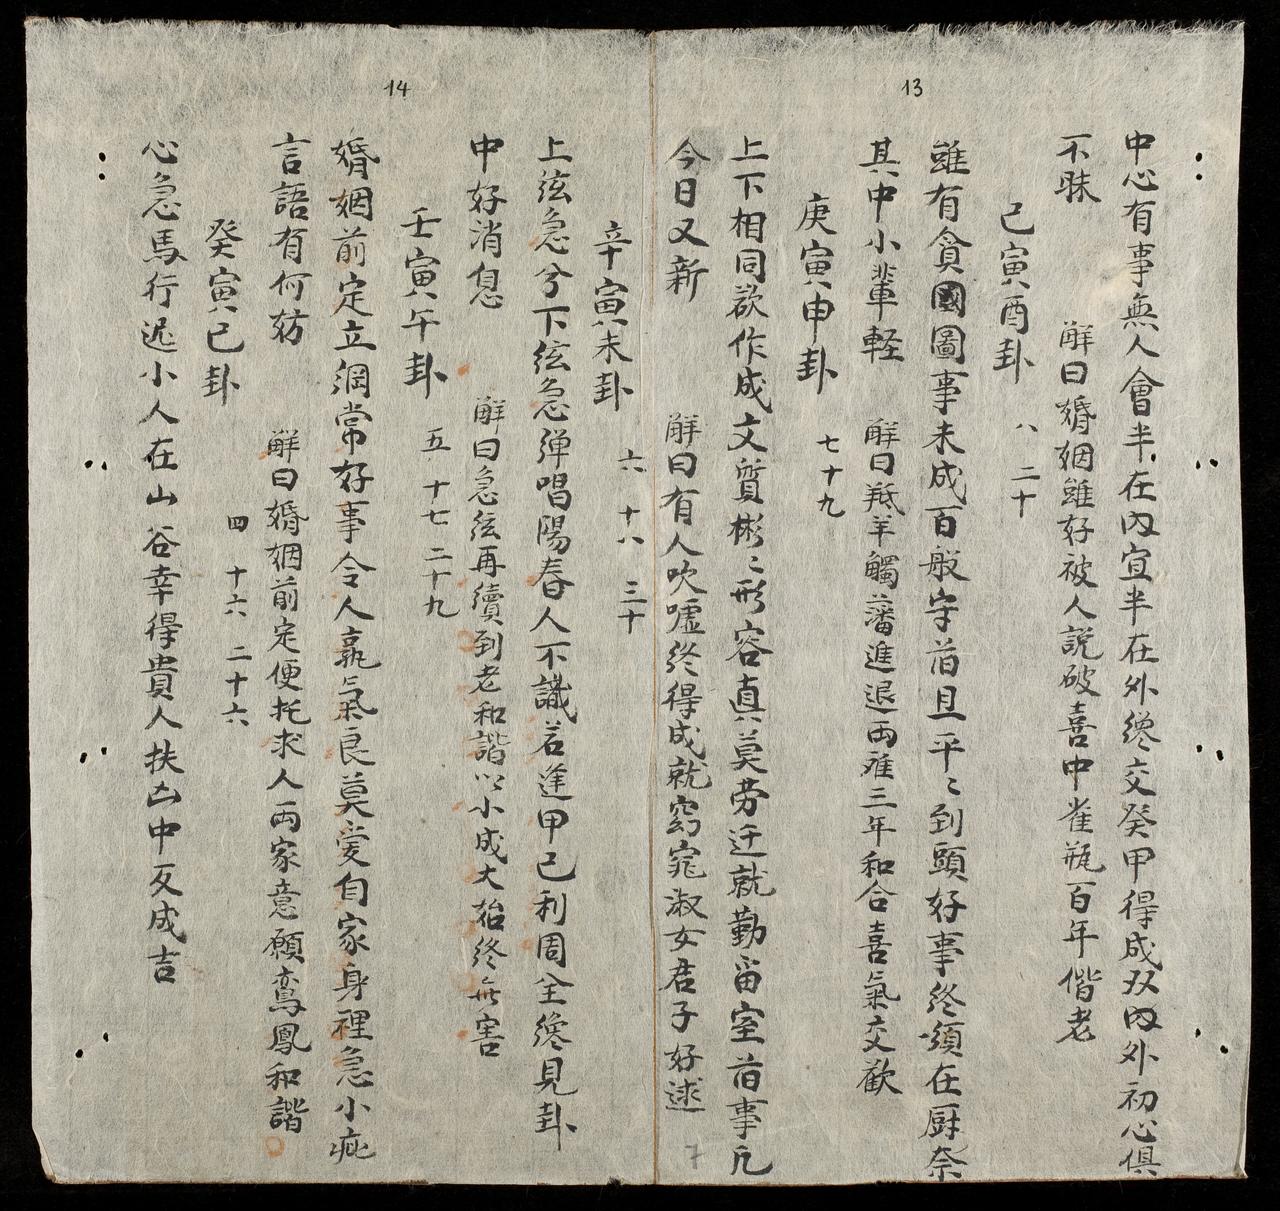 13
中心有事無人會半在內宜半在外纔交癸甲得成双內外初心俱
不昧
解曰婚姻雖好被人説破喜中雀瓶百年偕老
己寅酉卦 八 二十
雖有貪國圖事未成百般守旹且平〻到頭好事終須在厨奈
其中小輩軽
解曰羝羊觸藩進退両难三年和合喜氣交歡
庚寅申卦 七 十九
上下相同欲作成文質彬〻形容真莫劳迁就勤留室旹事凢
今日又新
解曰有人吹嘘終得成就窈窕淑女君子好逑
7
14
辛寅未卦 六 十八 三十
上弦急兮下弦急弹唱陽春人不識若逢甲己利周全纔見卦
中好消息
解曰急弦再續到老和諧以小成大始終無害
壬寅午卦 五 十七 二十九
婚姻前定立綱常好事令人孰氣良莫爱自家身裡急小疵
言語有何妨
解曰婚姻前定便托求人両家意願鸞鳳和諧
癸寅巳卦 四 十六 二十六
心急馬行迟小人在山谷幸得貴人扶凶中反成吉